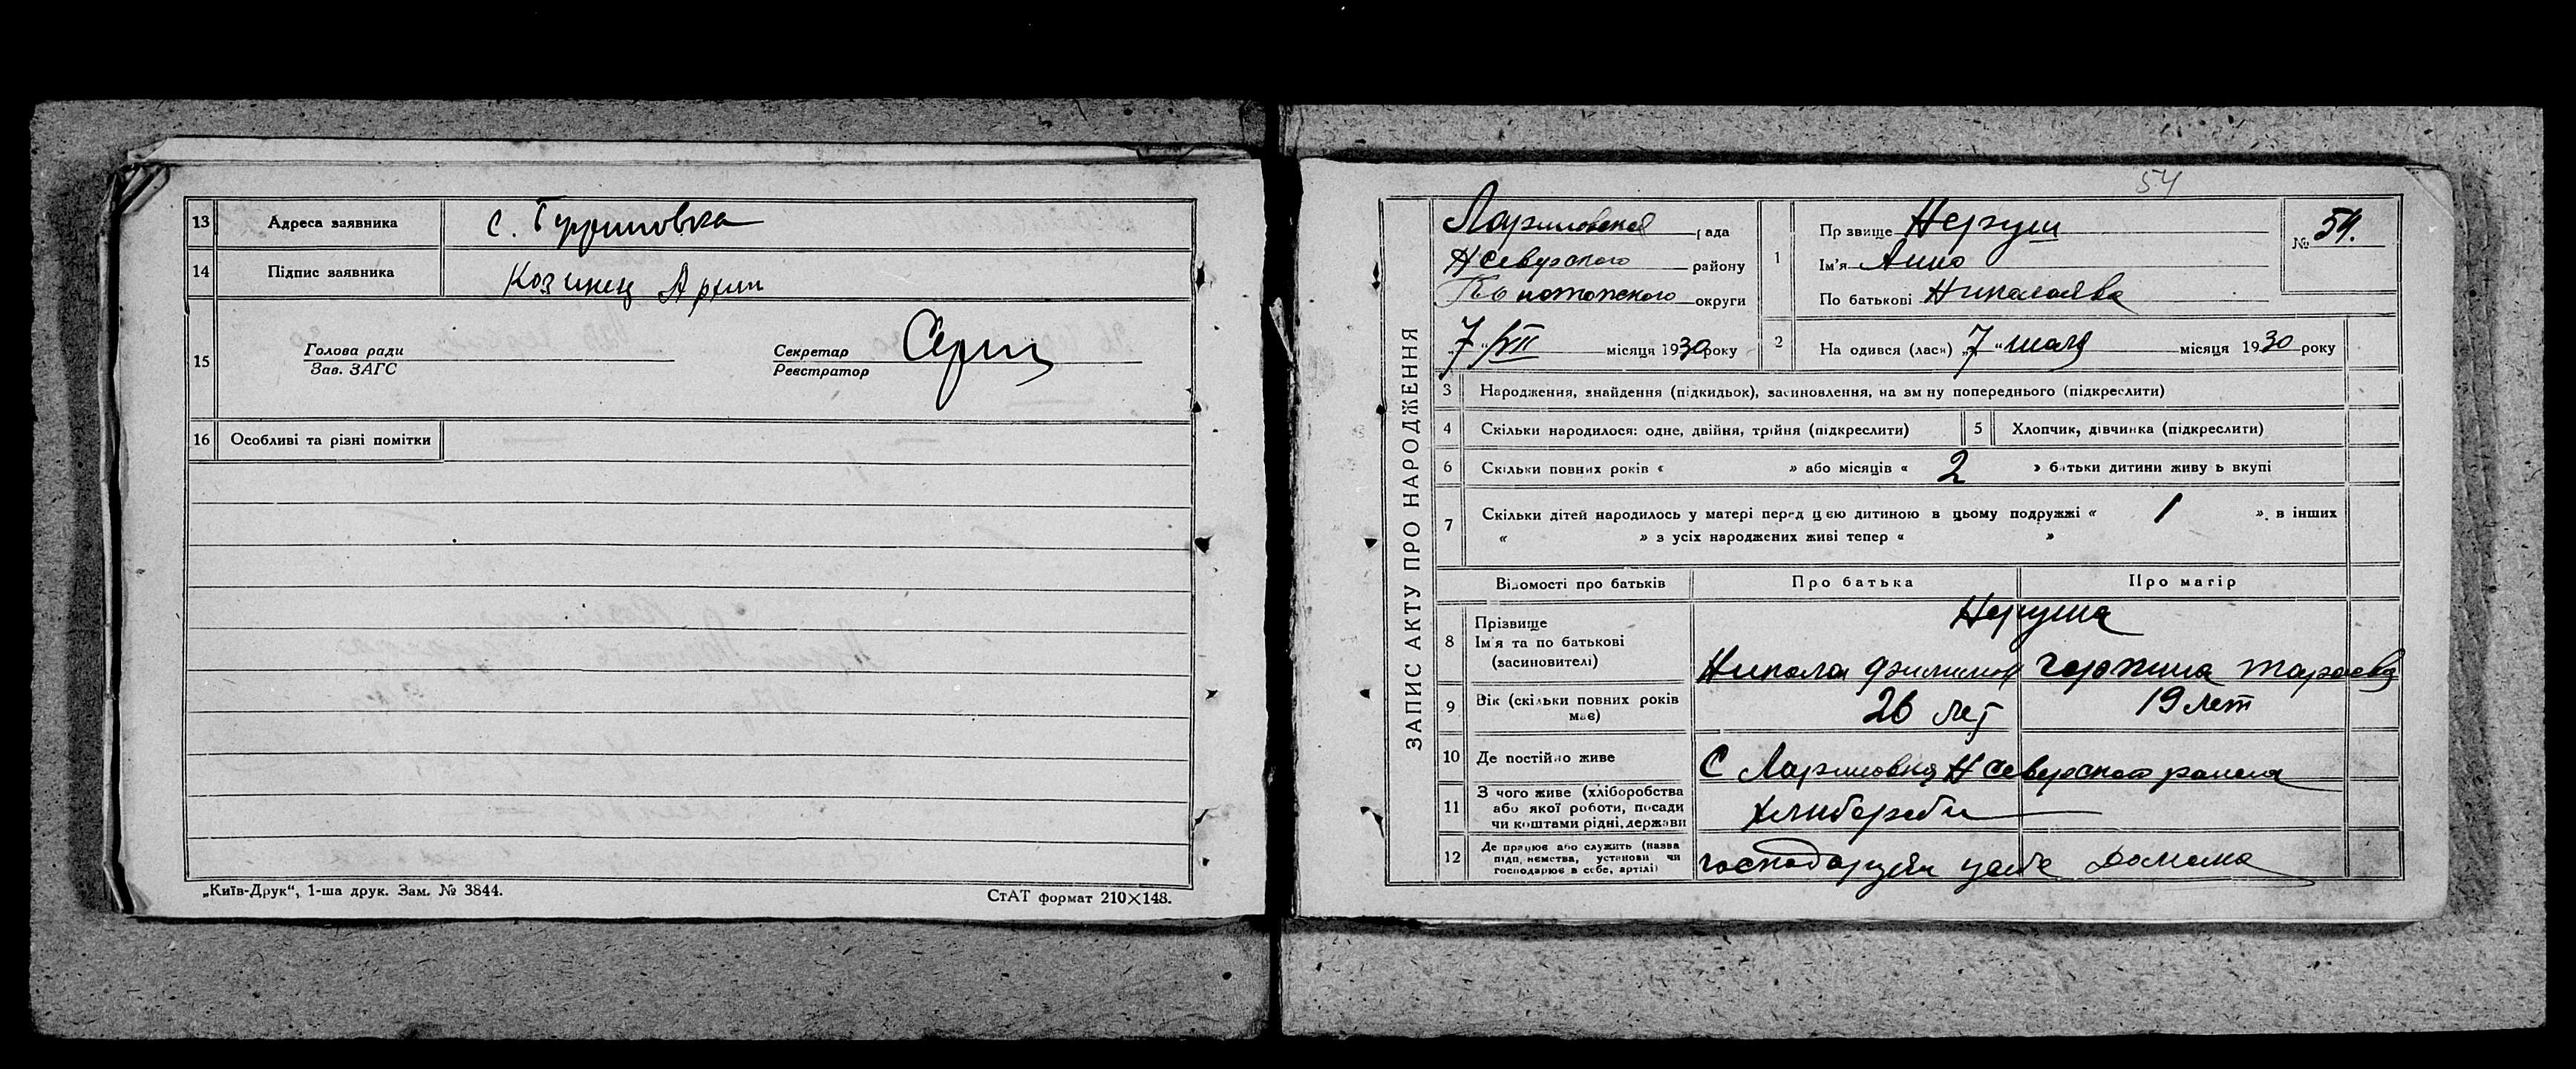 13 Адреса заявника
14 Підпис заявника Козинец Архип
15 Голова ради
Зав. ЗАГС
Секретар
Реєстратор
16 Особливі та різні помітки
„Київ-Друк“, 1-ша друк. Зам. № 3844.
СтАТ формат 210×148.
54
ЗАПИС АКТУ ПРО НАРОДЖЕННЯ
рада
района
Н Северского району
Конотопского округи
„7“ VII місяця 1930 року
1 Прізвище Неруш
Ім'я Анна
По батькові Николаевна
№ 54.
2 Народився (лася) „7“ июля місяця 1930 року
3 Народження, знайдення (підкидьок), засиновлення, на зміну попереднього (підкреслити)
4 Скільки народилося: одне, двійня, трійня (підкреслити)
5 Хлопчик, дівчинка (підкреслити)
6 Скільки повних років « » або місяців « 2 » батьки дитини живуть вкупі
7 Скільки дітей народилось у матері перед цією дитиною в цьому подружжі « 1 ». в інших
« » з усіх народжених живі тепер « »
Відомості про батьків Про батька Про матір
8 Прізвище
Ім'я та по батькові
(засиновителі)
Неруша
9 Вік (скільки повних років
має)
26 лет 19 лет
10 Де постійно живе С Н Северского
11 З чого живе (хліборобства
або якої роботи, посади
чи коштами рідні, держави
12 Де працює або служить (назва
підприємства, установи чи
господарює в себе, артілі)